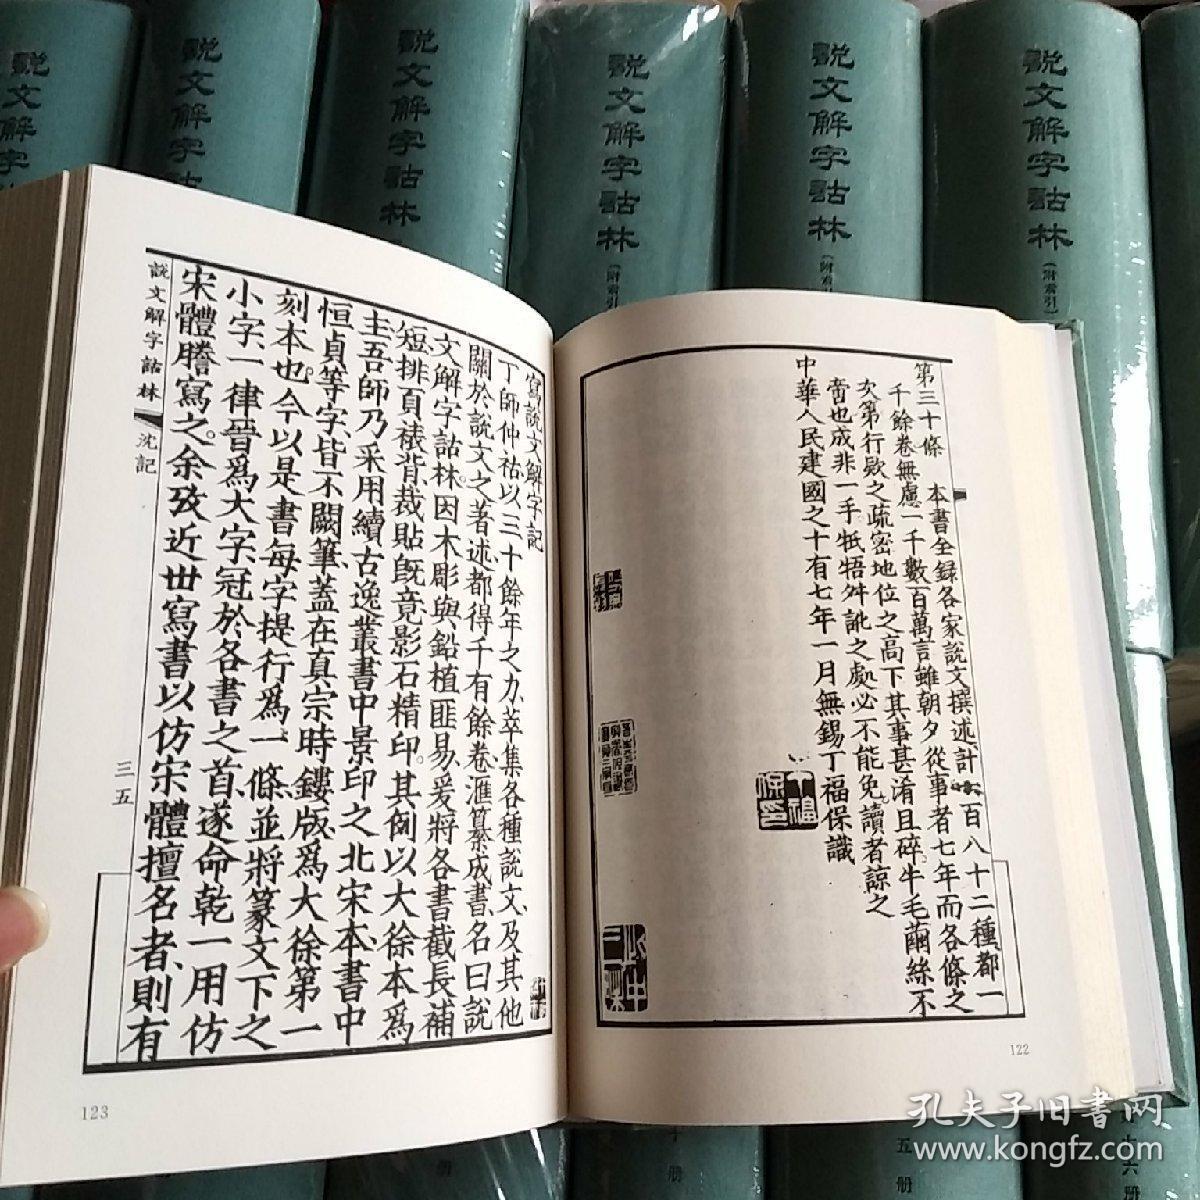 説文解字詁林
説文解字詁林
説文解字詁林
(附索引)
説文解字詁林
(附索引)
説文解字詁林
(附索引)
説文解字詁林
文解字詁
第三十條　本書全錄各家説文撰述計一百八十二種、都一
千餘卷無慮一千數百萬言雖朝夕從事者七年而各條之
次第行欵之疏密地位之高下其事甚淆且碎、牛毛繭絲不
啻也成非一手牴牾舛訛之處必不能免、讀者諒之
中華人民建國之十有七年一月無錫丁福保識
122
寫説文解字記
丁師仲祜以三十餘年之力、萃集各種説文、及其他
關於説文之著述、都得千有餘卷、滙纂成書、名曰説
文解字詁林。因木彫與鉛植匪易、爰將各書截長補
短、排頁裱背、裁貼旣竟、影石精印。其例以大徐本爲
主、吾師乃采用續古逸叢書中景印之北宋本、書中
恒貞等字、皆不闕筆、蓋在真宗時鏤版、爲大徐第一
刻本也。今以是書每字提行、爲一條、並將篆文下之
小字、一律晉爲大字、冠於各書之首、遂命乾一用仿
宋體謄寫之。余攷近世寫書以仿宋體擅名者、則有
説文解字詁林
沈記
三五
123
册
五册
十六册
孔夫子旧書网
www.kongfz.com